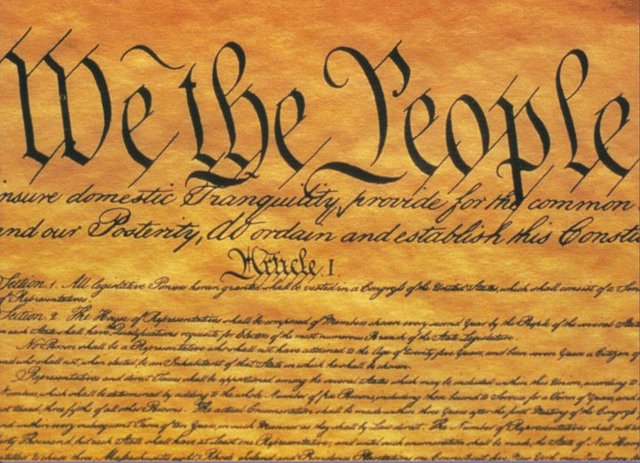 We the People
insure domestic Tranquility, provide for the common
and our Posterity, do ordain and establish this Constit
Article. I.
Section. 1. All legislative Powers herein granted shall be vested in a Congress of the United States, which shall consist of a Sen
of Representatives.
Section. 2. The House of Representatives shall be composed of Members chosen every second Year by the People of the several States
in each State shall have Qualifications requisite for Electors of the most numerous Branch of the State Legislature.
No Person shall be a Representative who shall not have attained to the Age of twenty five Years, and been seven Years a Citizen
and who shall not, when elected, be an Inhabitant of that State in which he shall be chosen.
Representatives and direct Taxes shall be apportioned among the several States which may be included within this Union, according to
Numbers, which shall be determined by adding to the whole Number of free Persons, including those bound to Service for a Term of Years, and
not taxed, three fifths of all other Persons. The actual Enumeration shall be made within three Years after the first Meeting of the Congress
and within every subsequent Term of ten Years, in such Manner as they shall by Law direct. The Number of Representatives shall not
thirty Thousand, but each State shall have at Least one Representative; and until such enumeration shall be made, the State of New Ham